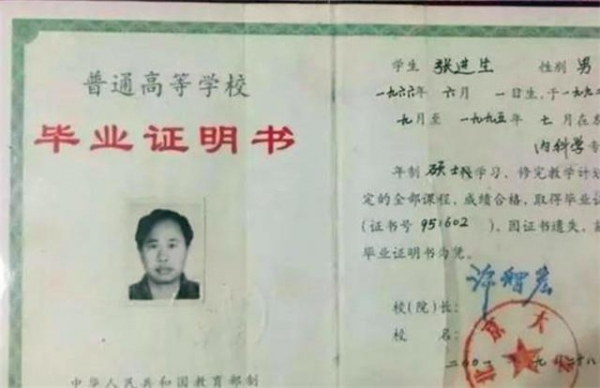 普通高等学校
毕业证明书
中华人民共和国教育部制
学生 张进生 性别 男
一九六六年 六月 一日生,于一九九
九月至 一九九五年 七月在
内科学专
年制 硕士 学习,修完教学计划
定的全部课程,成绩合格,取得毕业证
(证书号 951602),因证书遗失,
毕业证明书为凭。
许智宏
校(院)长:
校 名:
京大